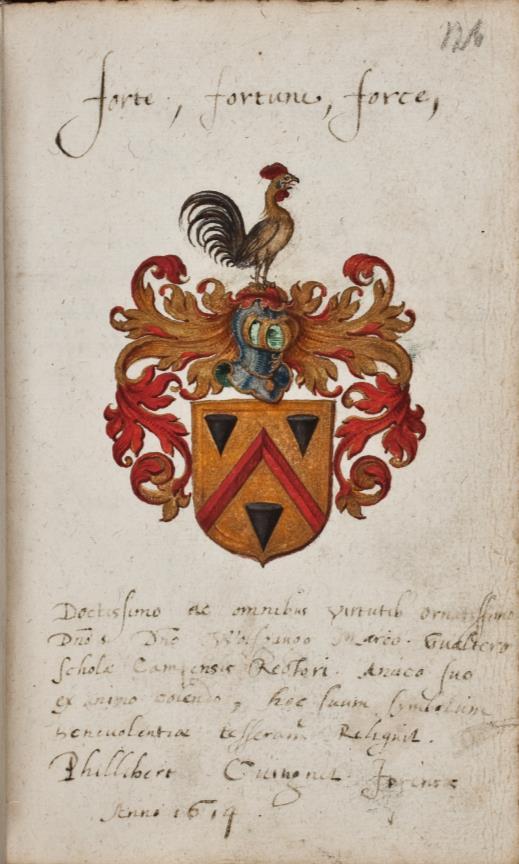 126
forte, fortune, force,
Doctissimo ac omnibus virtutib ornatissimo
Dño Dño Marco Gualtero
Scholæ Campensis Rectori. Amico suo
ex animo colendo, hoc suum symbolum
benevolentiæ tesseram Reliquit.
Phillibert
Anno 1614